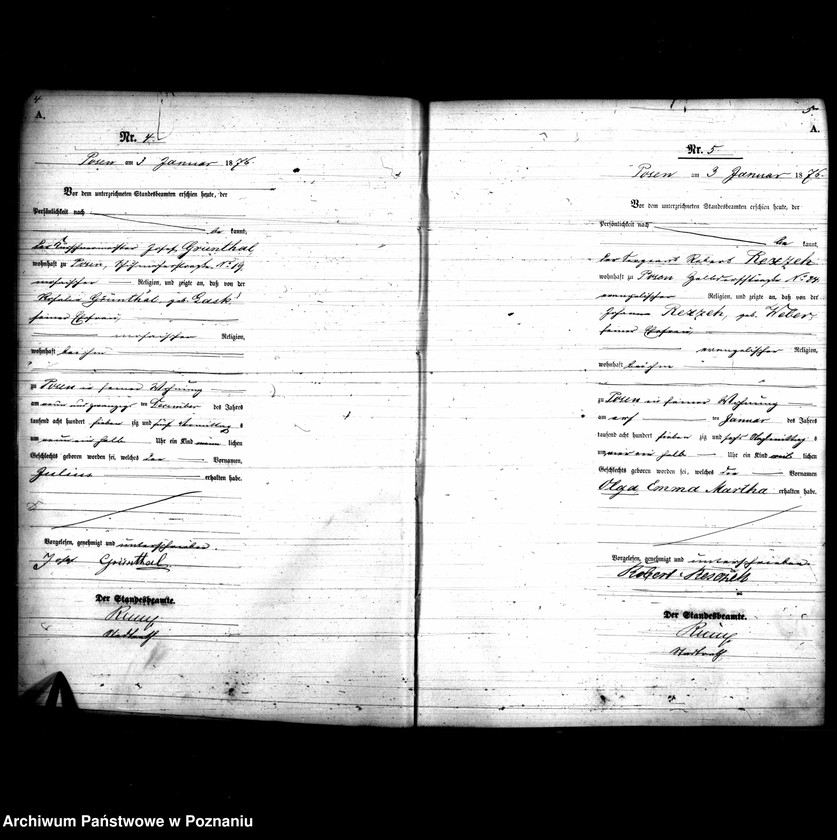 4
A.
Nr. 4.
Posen am 3 Januar 1876.
Vor dem unterzeichneten Standesbeamten erschien heute, der
Persönlichkeit nach
be kannt,
der Josef Grünthal
wohnhaft zu Posen, No 19
mosaischer Religion, und zeigte an, daß von der
Rosalie Grünthal, geb.
seiner Ehefrau
mosaischer Religion,
wohnhaft bei ihm
zu Posen in seiner Wohnung
am neun und zwanzigsten December des Jahres
tausend acht hundert siebenzig und fünf Vormittags
um neun ein halb Uhr ein Kind männlichen
Geschlechts geboren worden sei, welches den Vornamen,
Julius erhalten habe.
Vorgelesen, genehmigt und unterschrieben.
Josef Grünthal.
Der Standesbeamte.
Stadtrath
5
A.
Nr. 5
Posen am 3 Januar 1876.
Vor dem unterzeichneten Standesbeamten erschien heute, der
Persönlichkeit nach
be kannt,
der Sergeant Robert Reszeh
wohnhaft zu Posen No 34
evangelischer Religion, und zeigte an, daß von der
Johanna Reszeh, geb. Weber,
seiner Ehefrau
evangelischer Religion,
wohnhaft bei ihm
zu Posen in seiner Wohnung
am ersten Januar des Jahres
tausend acht hundert siebenzig und sechs Nachmittags
um ein halb Uhr ein Kind weiblichen
Geschlechts geboren worden sei, welches die Vornamen
Olga Emma Martha erhalten habe.
Vorgelesen, genehmigt und unterschrieben.
Robert
Der Standesbeamte.
Stadtrath
Archiwum Państwowe w Poznaniu